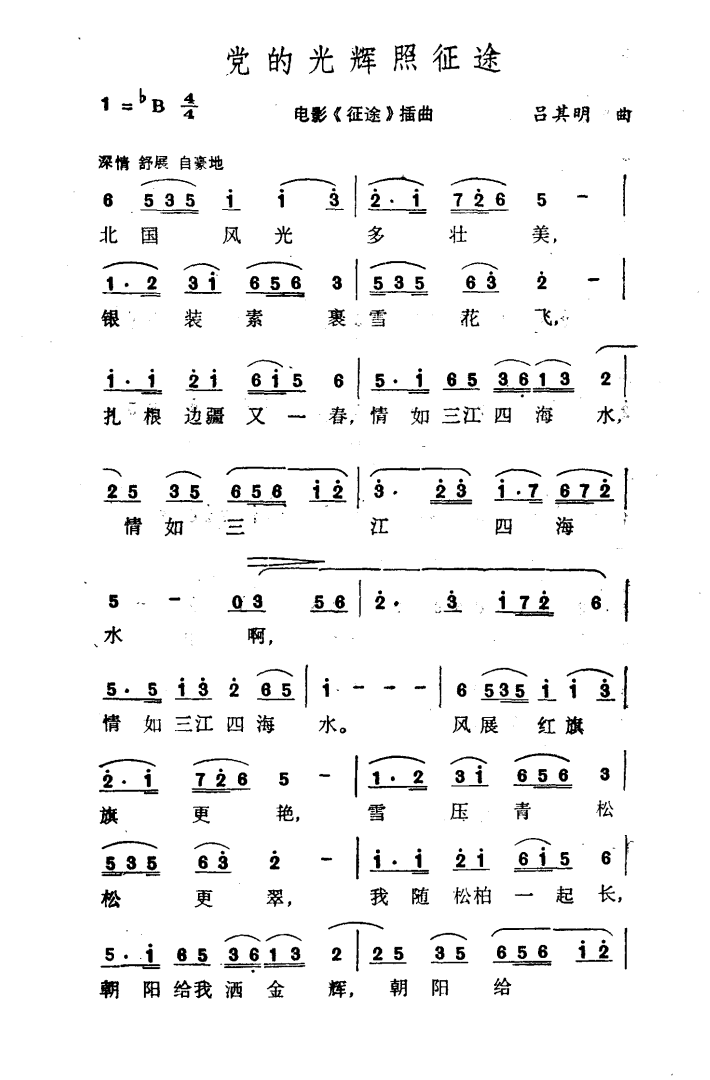 党的光辉照征途
1=♭B 4/4 电影《征途》插曲 吕其明 曲
深情 舒展 自豪地
6 5 3 5 i i 3 | 2· i 7 2 6 5 － |
北国 风光 多 壮 美，
1· 2 3 i 6 5 6 3 | 5 3 5 6 3 2 － |
银 装 素 裹 雪 花 飞，
i· i 2 i 6 i 5 6 | 5· i 6 5 3 6 1 3 2 |
扎 根 边疆 又 一 春，情 如 三江 四 海 水，
2 5 3 5 6 5 6 i 2 | 3· 2 3 i· 7 6 7 2 |
情 如 三 江 四 海
5 － 0 3 5 6 | 2· 3 i 7 2 6 |
水 啊，
5· 5 i 3 2 6 5 | i － － － | 6 5 3 5 i i 3 |
情 如 三江 四 海 水。 风 展 红 旗
2· i 7 2 6 5 － | 1· 2 3 i 5 6 5 6 3 |
旗 更 艳， 雪 压 青 松
5 3 5 6 3 2 － | i· i 2 i 6 i 5 6 |
松 更 翠， 我 随 松柏 一 起 长，
5· i 6 5 3 6 1 3 2 | 2 5 3 5 6 5 6 i 2 |
朝 阳 给我 洒 金 辉，朝 阳 给